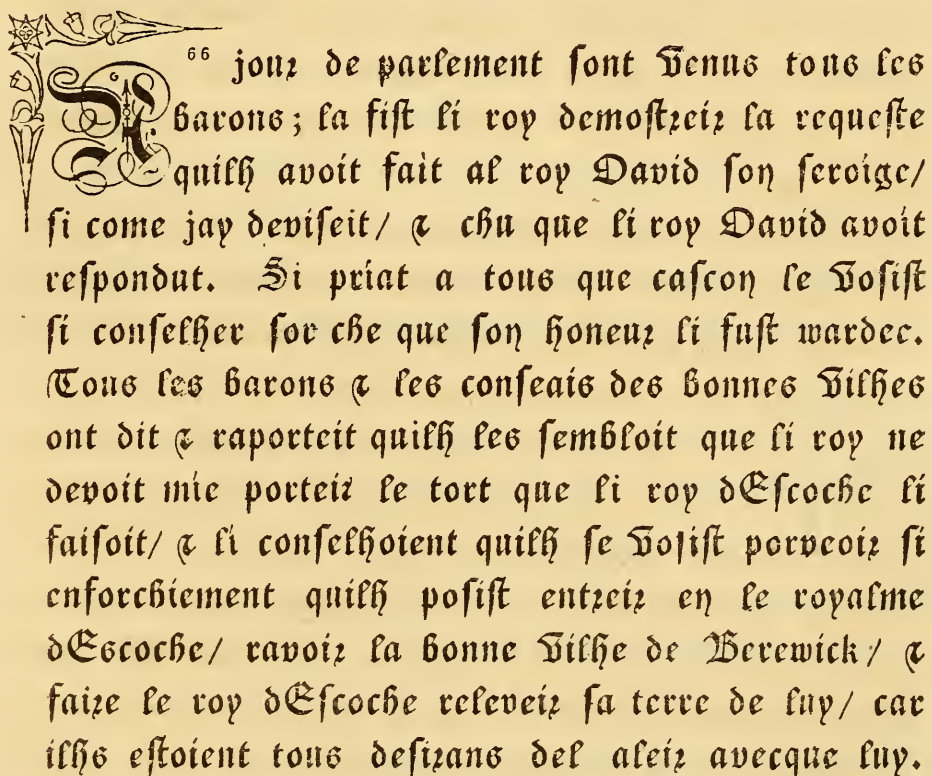 A 66 jour de parlement ſont venus tous les
barons; la fiſt li roy demoſtreir la requeſte
quilh avoit fait al roy David ſon ſeroige/
ſi come jay deviſeit/ & chu que li roy David avoit
reſpondut. Si priat a tous que caſcon le voſiſt
ſi conſelher ſor che que ſon honeur li fuſt wardee.
Tous les barons & les conſeais des bonnes vilhes
ont dit & raporteit quilh les ſembloit que li roy ne
devoit mie porteir le tort que li roy dEſcoche li
faiſoit/ & li conſelhoient quilh ſe voſiſt porveoir ſi
enforchiement quilh poſiſt entreir en le royalme
dEscoche/ ravoir la bonne vilhe de Berewick/ &
faire le roy dEſcoche releveir ſa terre de luy/ car
ilhs eſtoient tous deſirans del aleir avecque luy.